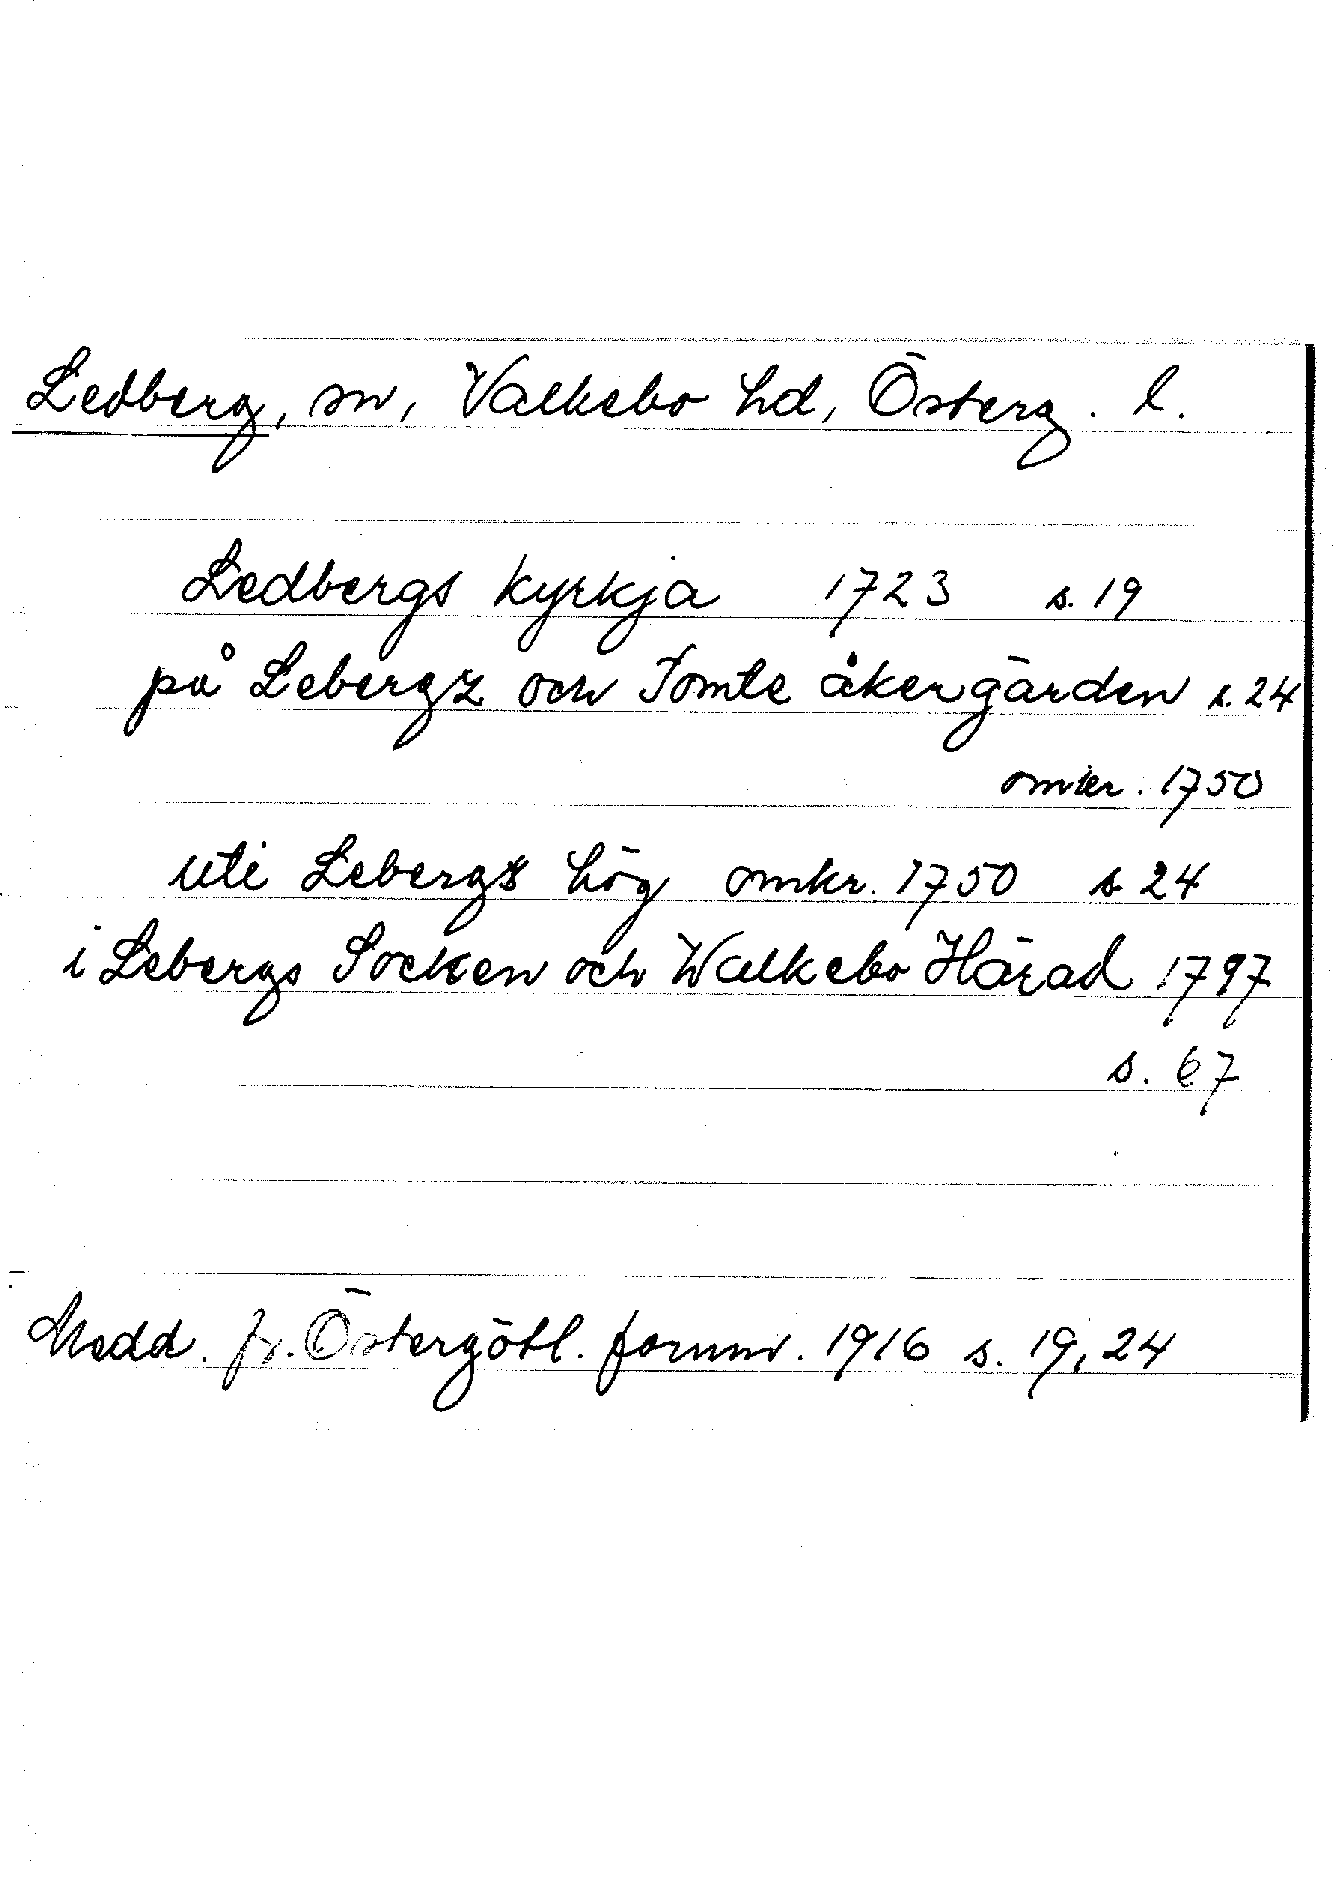 Ledberg, sn, Valkebo hd, Österg. l.
Ledbergs kyrkja 1723 s. 19
på Lebergz och Tomte åkergärden s. 24
omkr. 1750
uti Lebergs hög omkr. 1750 s 24
i Lebergs Socken och Walkebo Härad 1797
s. 67
Medd. fr. Östergötl. fornm. 1916 s. 19, 24